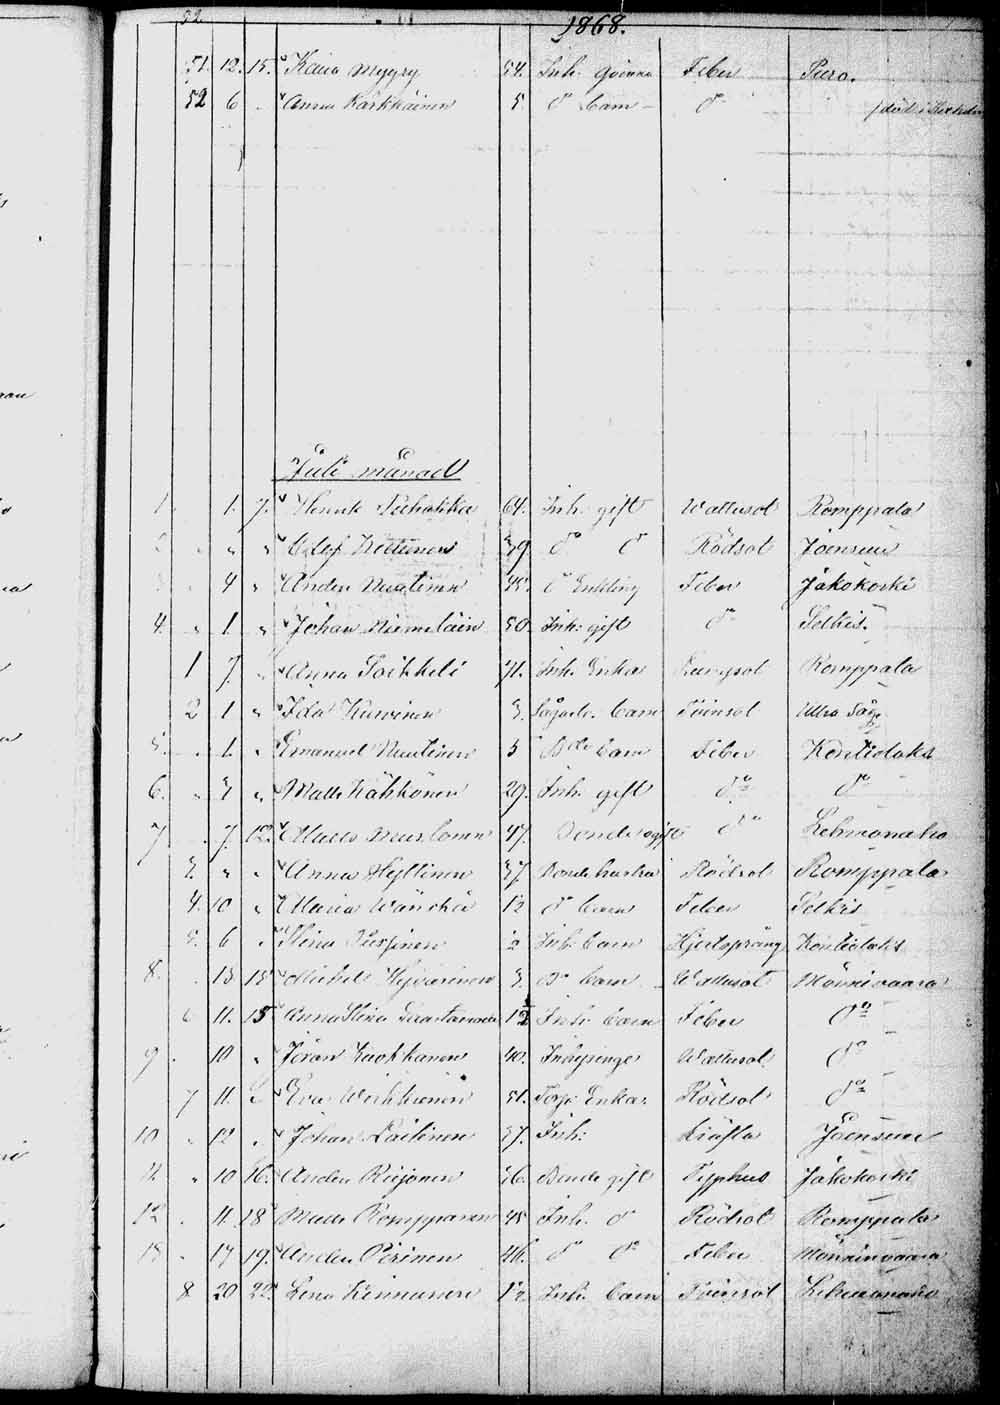 52
1868.
51. 12. 15. Kaisa Myyry 54. Inh. qvinna Feber Puro.
52 6 Anna Kärkkäinen 5 do barn do
Juli månad
1 1. 7. Henrik 64. Inh. gift Wattusot Romppala
2 " " Olof Kettunen 39 do do Rödsot Joensuu
4 " Anders Nuutinen 45. do Enkling Feber Jakokoski
4. " 1 " Johan Niemeläin 50. Inh. gift do Selkis.
1 7. " Anna Soikkeli 71. Inh. Enka Lungsot Romppala
2 1 " Ida Kurvinen 3. Sågarb. barn Tvinsot Utra Såg
5. . 1. " Emanuel Nuutinen 5 Bde barn Feber Kontiolaks
6. " 3 " Matts Kähkönen 29. Inh. gift do do
7 . 7. 12. Matts Mustonen 47. Bonde ogift do Lehmonaho
3. " " Anna Hyttinen 37. Bondehustru Rödsot Romppala
4. 10 " Maria Wänskä 12 do barn Feber Selkis
5. 6 " Stina Piippinen ½ Inh. barn Hjertsprång Kontiolaks
8. . 13 13 Michel Hyvärinen 3. do barn Wattusot Mönnivaara
6 11. 15 Anna Stina 1½ Inh. barn Feber do
9 . 10 " Jöran Kuokkanen 40. Inhysinge Wattusot do
7 11. " Eva Wirkkunen 51. Torp. Enka. Rödsot do
10 " 12 " Johan Laitinen 37. Inh. Kräfta Joensuu
11 " 10 16. Anders Reijonen 26. Bonde gift Typhus Jakokoski
12 . 11. 18 Matts Romppanen 45 Inh. do Rödsot Romppala
13 . 17 19. Anders Pesinen 46. do do Feber Mönnivaara
8 20 22. Lena Kinnunen 1½ Inh. barn Tvinsot Lehmonaho